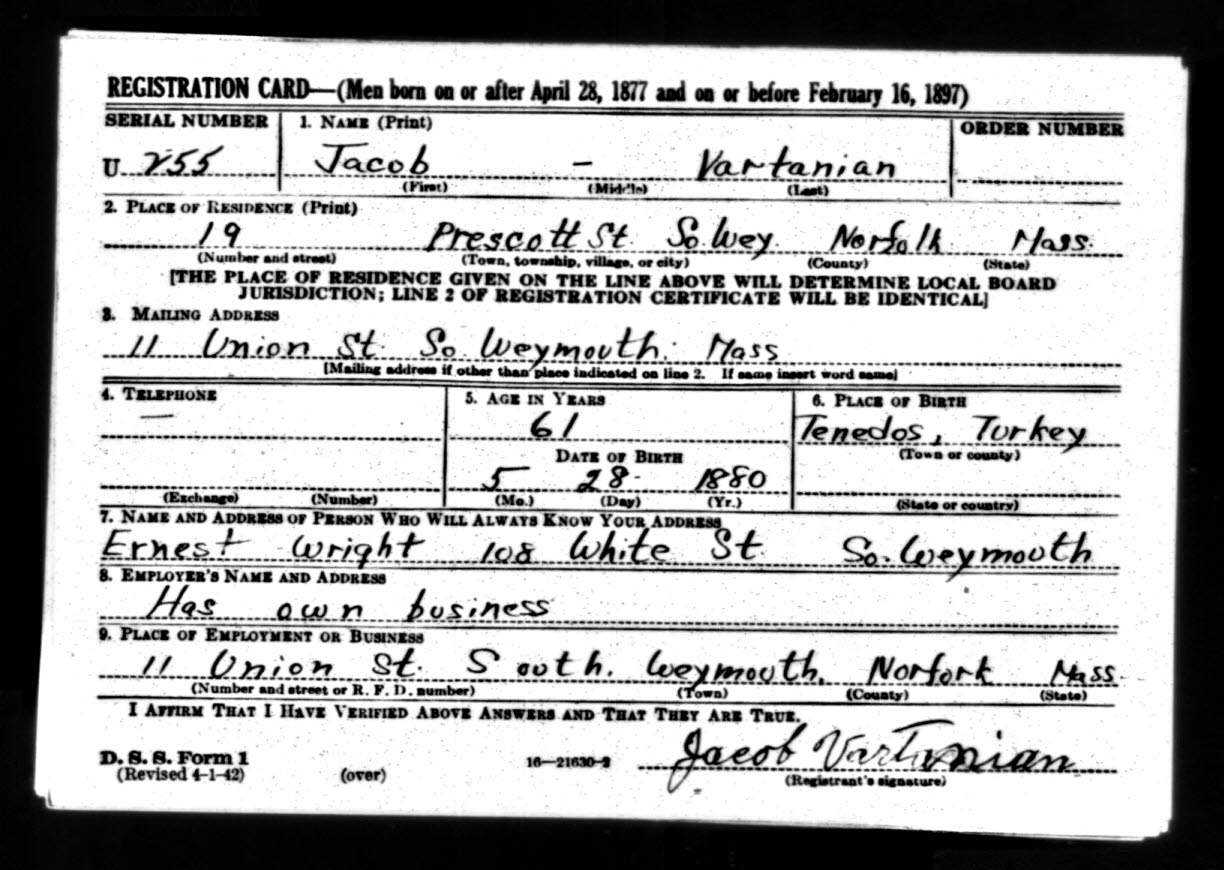 REGISTRATION CARD—(Men born on or after April 28, 1877 and on or before February 16, 1897)
SERIAL NUMBER 1. NAME (Print) ORDER NUMBER
U 255 Jacob – Vartanian
(First) (Middle) (Last)
2. PLACE OF RESIDENCE (Print)
19 Prescott St. So. Wey. Norfolk Mass.
(Number and street) (Town, township, village, or city) (County) (State)
[THE PLACE OF RESIDENCE GIVEN ON THE LINE ABOVE WILL DETERMINE LOCAL BOARD
JURISDICTION; LINE 2 OF REGISTRATION CERTIFICATE WILL BE IDENTICAL]
3. MAILING ADDRESS
11 Union St. So Weymouth. Mass
[Mailing address if other than place indicated on line 2. If same insert word same]
4. TELEPHONE 5. AGE IN YEARS 6. PLACE OF BIRTH
– 61 Tenedos, Turkey
(Town or county)
DATE OF BIRTH
5 28 1880
(Exchange) (Number) (Mo.) (Day) (Yr.) (State or country)
7. NAME AND ADDRESS OF PERSON WHO WILL ALWAYS KNOW YOUR ADDRESS
Ernest Wright 108 White St. So. Weymouth
8. EMPLOYER'S NAME AND ADDRESS
Has own business
9. PLACE OF EMPLOYMENT OR BUSINESS
11 Union St. South. Weymouth. Norfork Mass.
(Number and street or R. F. D. number) (Town) (County) (State)
I AFFIRM THAT I HAVE VERIFIED ABOVE ANSWERS AND THAT THEY ARE TRUE.
D. S. S. Form 1
(Revised 4-1-42) (over) 16—21630-2 Jacob Vartanian
(Registrant's signature)